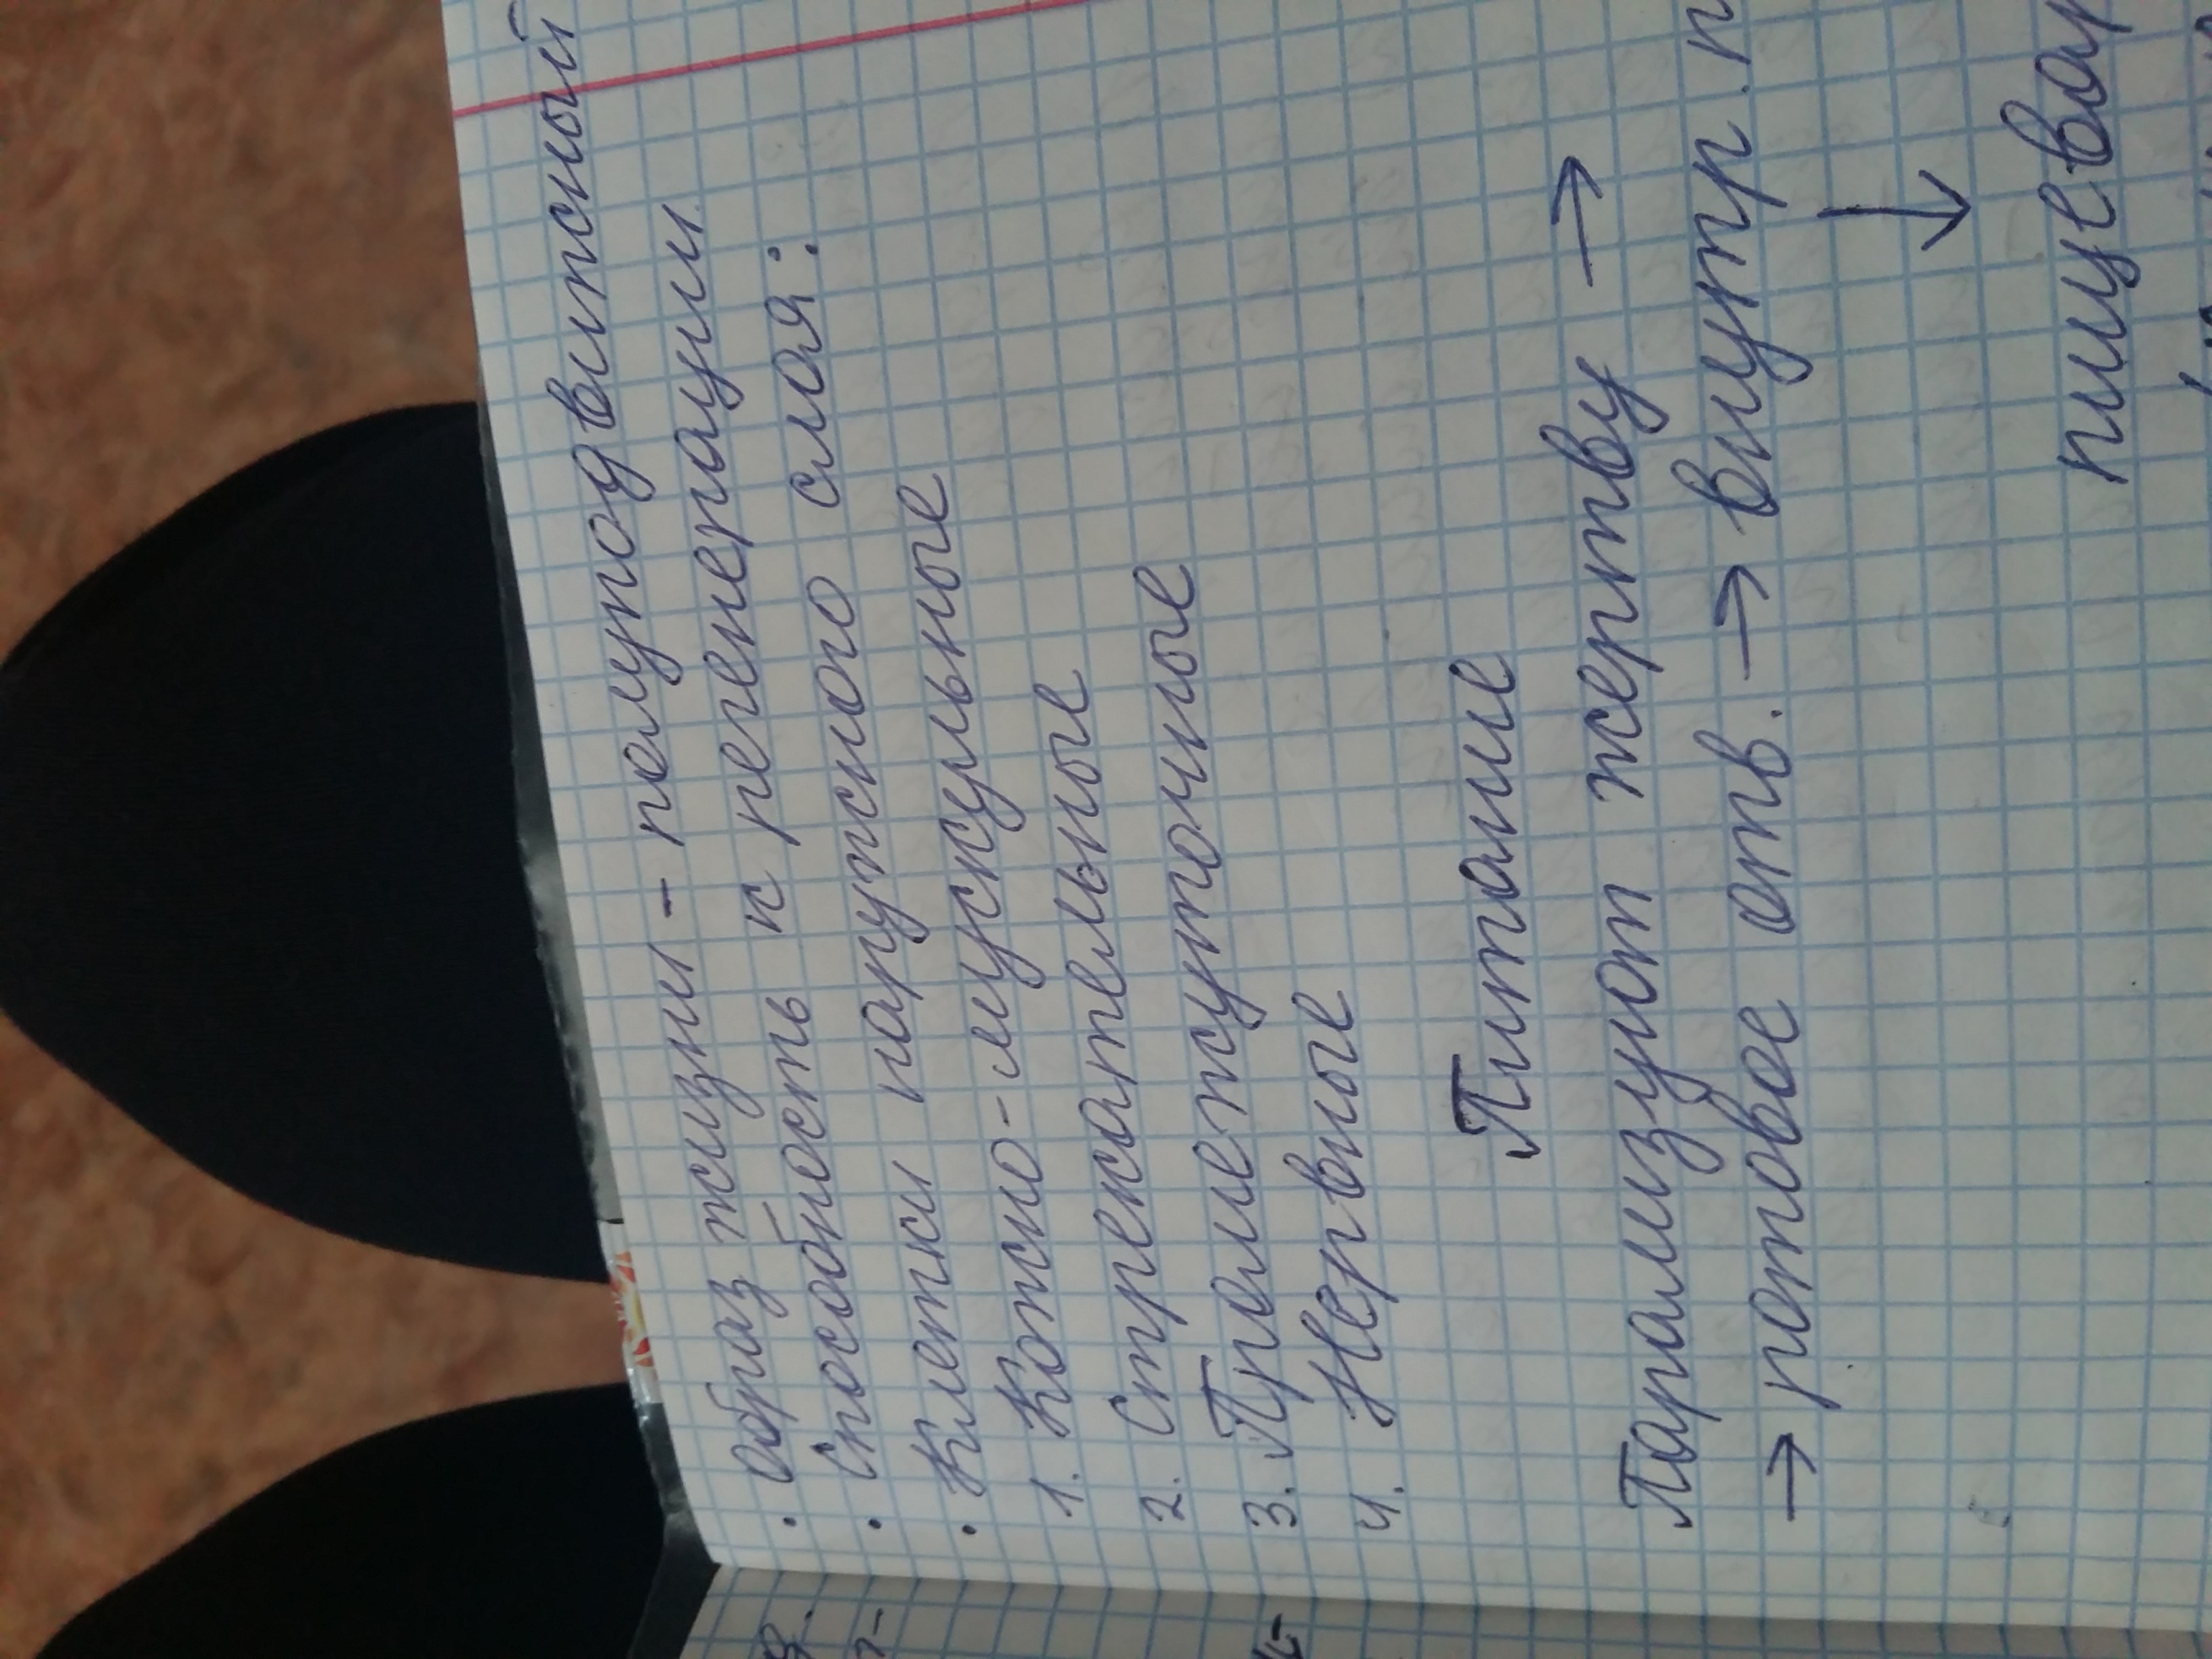 • Образ жизни - полуподвижный
• Способность к регенерации.
• Клетки наружного слоя:
1. Кожно-мускульные
2. Стрекательные
3. Промежуточные
4. Нервные
Питание
Парализуют жертву →
→ ротовое отв. → внутр. п
↓
пищевар